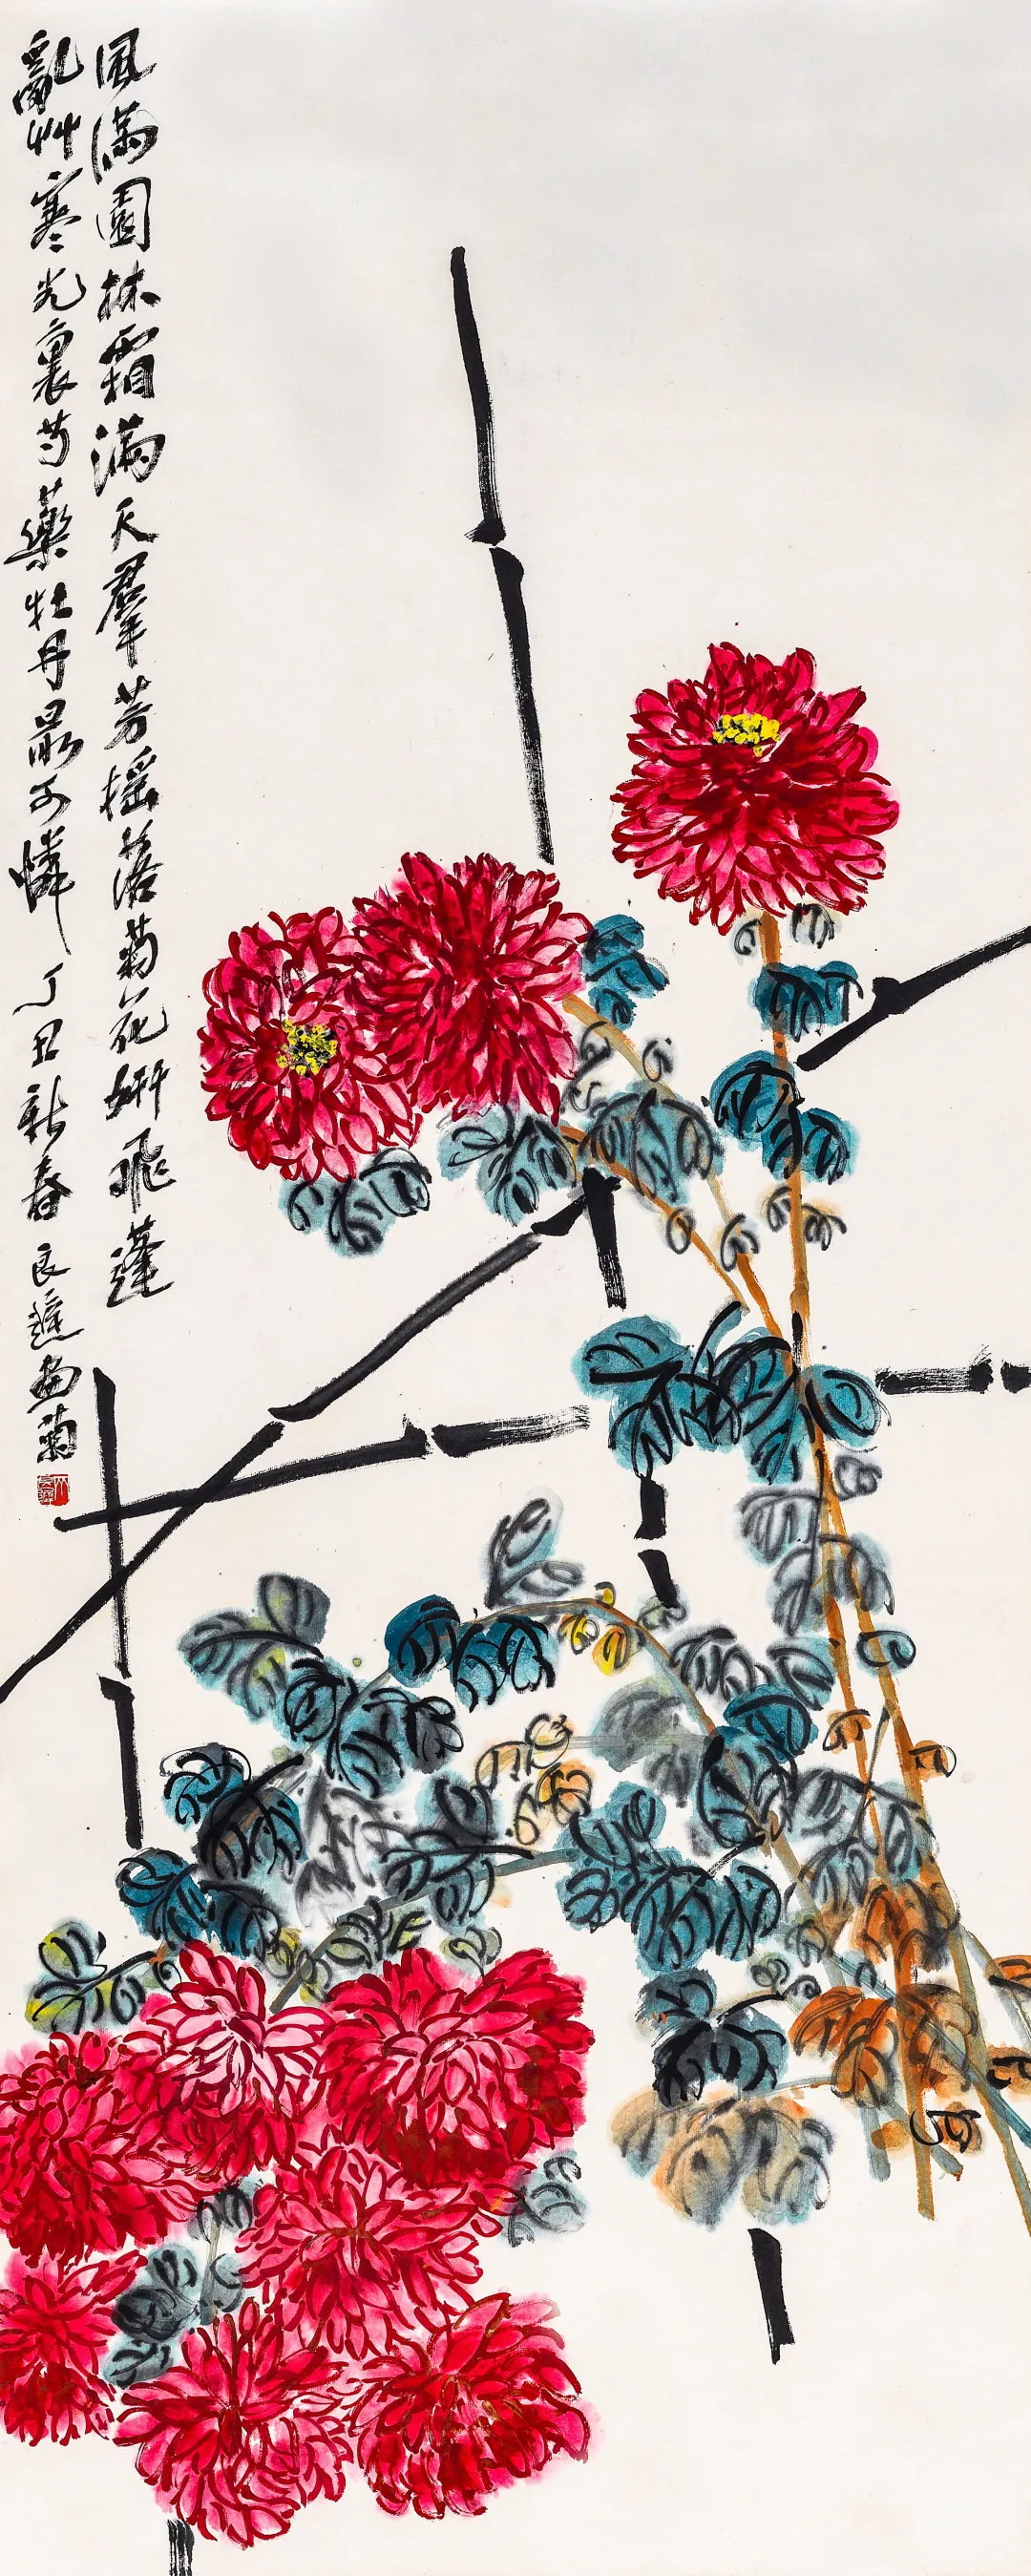 風滿園林霜滿天羣芳搖落菊花妍飛蓬
亂艸寒光裏芍藥牡丹最可憐 丁丑新春 良遲画菊